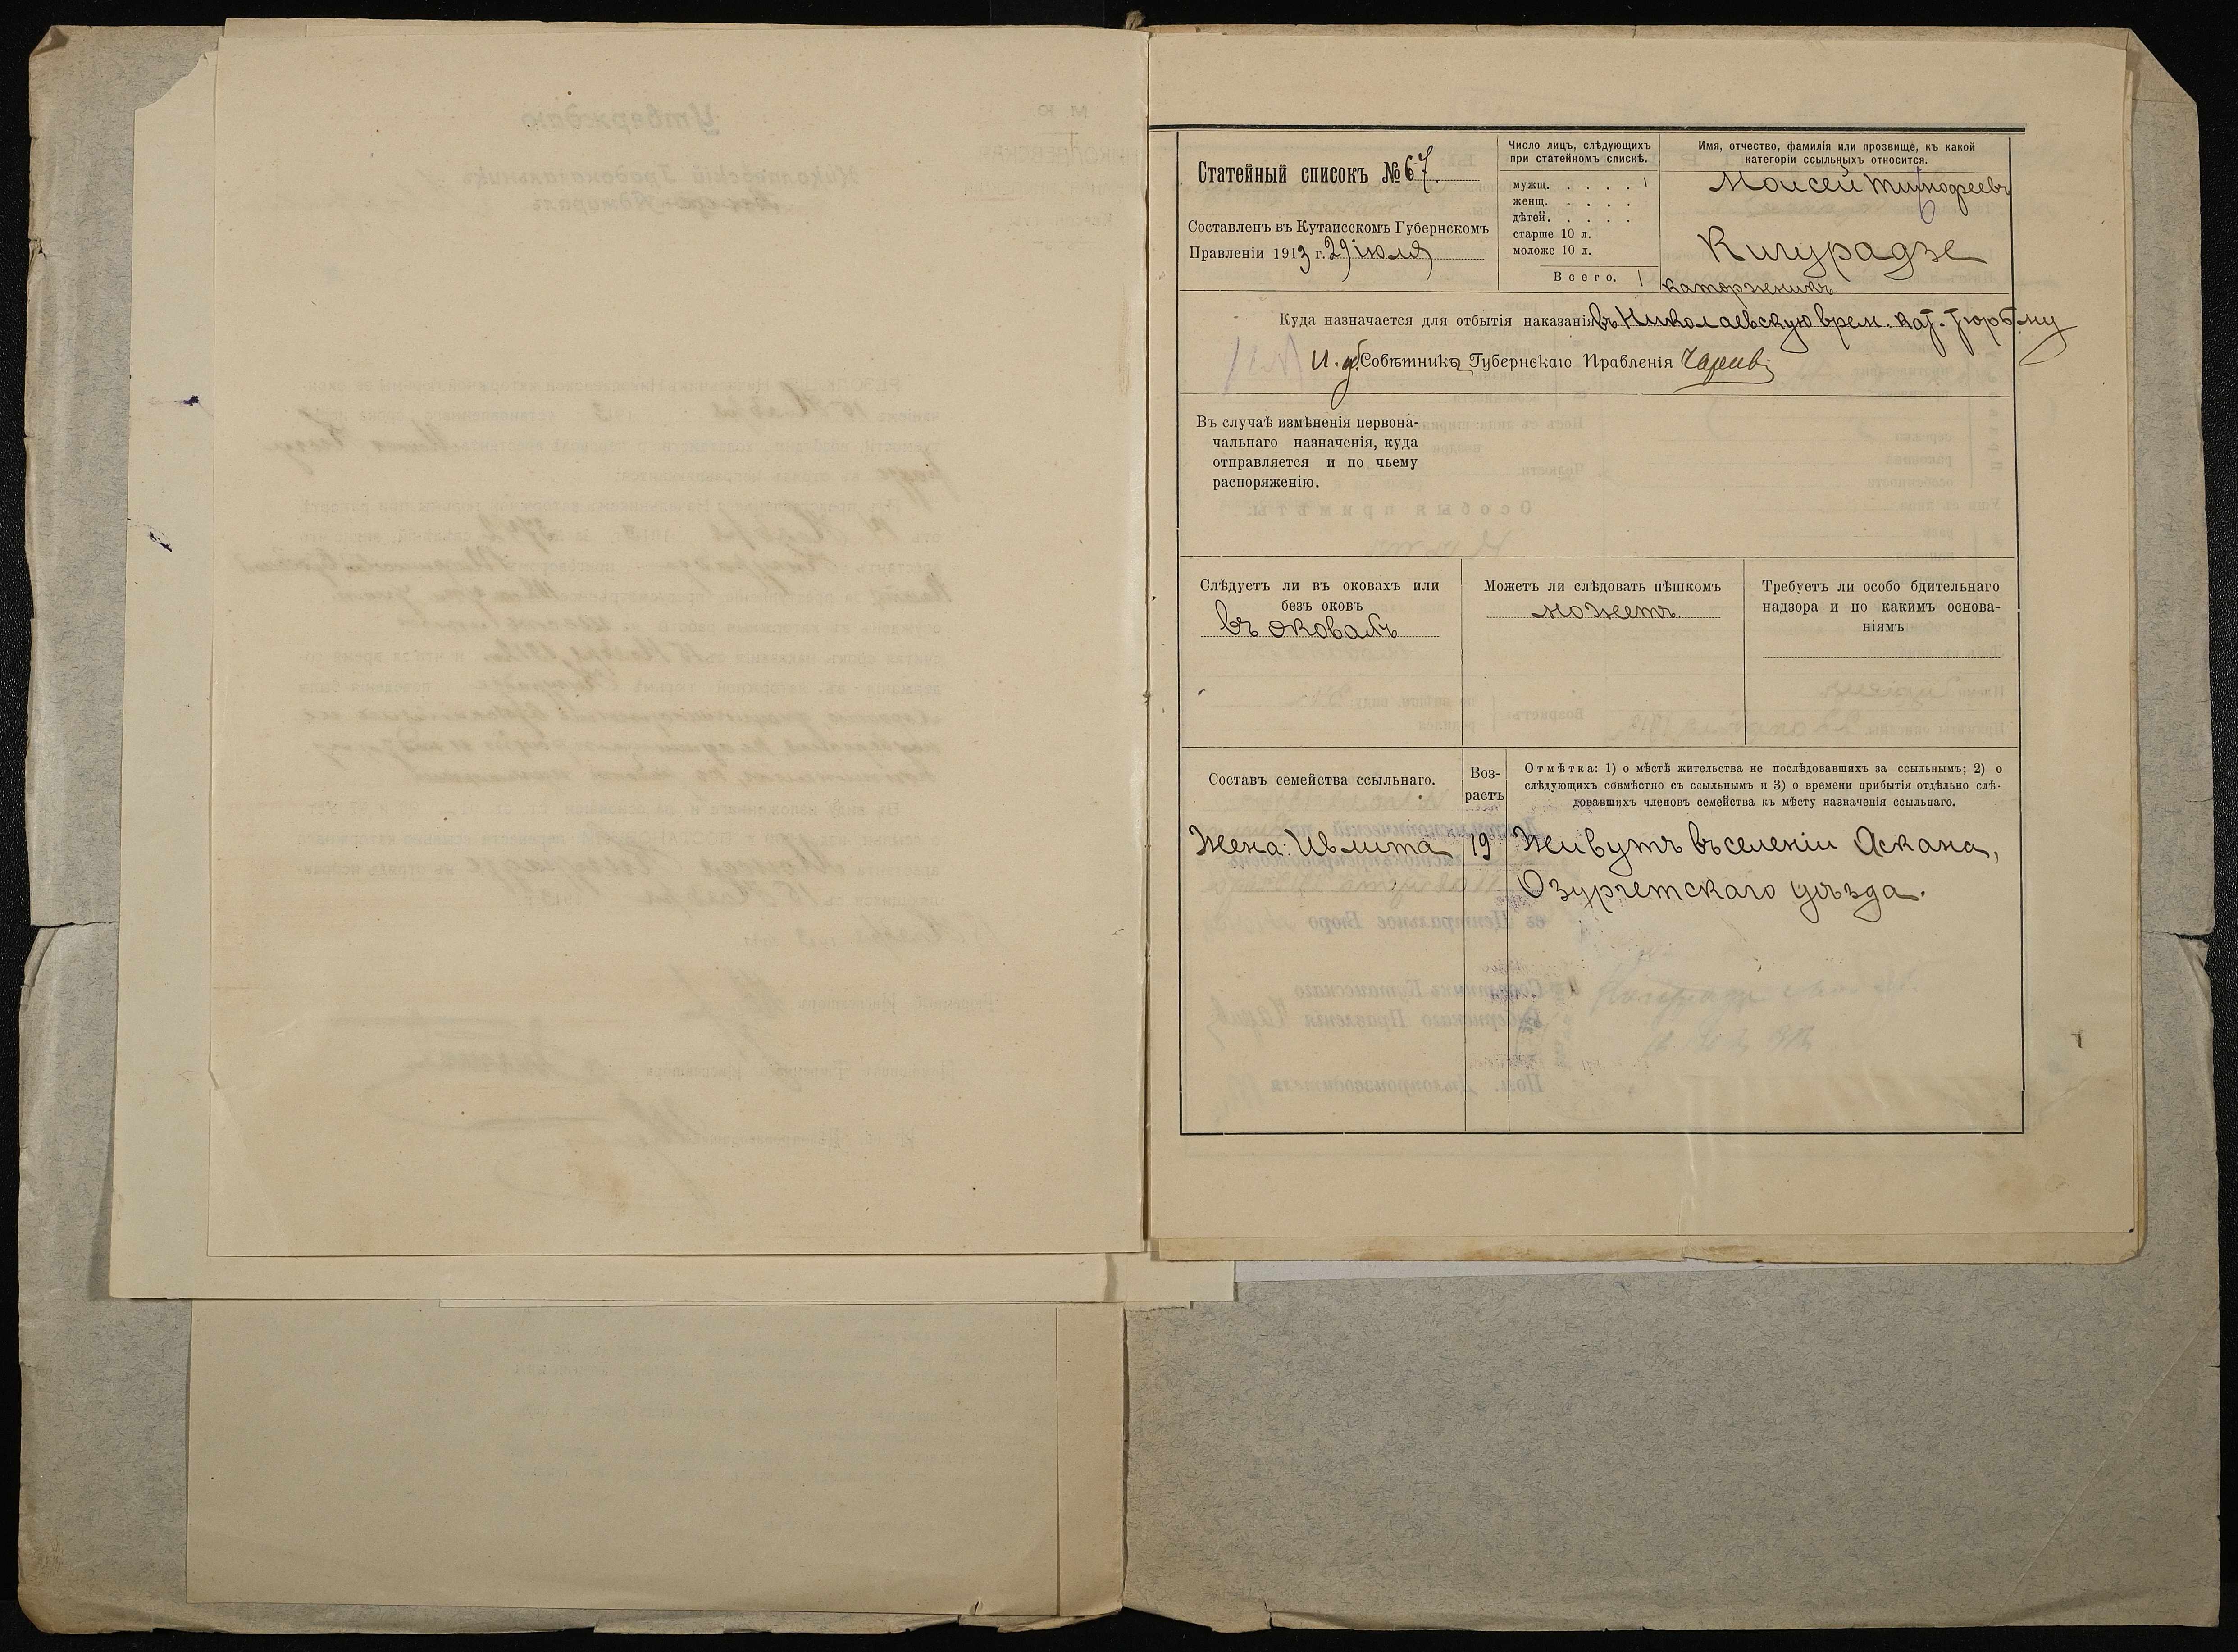 Статейный списокъ № 67.
Составленъ въ Кутаисскомъ Губернскомъ
Правленіи 1913 г. 29 іюля
Число лицъ, слѣдующихъ
при статейномъ спискѣ.
мужщ. . . . . 1
женщ. . . . .
дѣтей. . . . .
старше 10 л.
моложе 10 л.
Всего. 1
Имя, отчество, фамилія или прозвище, къ какой
категоріи ссыльныхъ относится.
Моисей Тимофеевъ
Кигурадзе
каторжникъ.
Куда назначается для отбытія наказанія въ Николаевскую врем. кат. тюрьму
И. д. Совѣтника Губернскаго Правленія
Въ случаѣ измѣненія первона-
чальнаго назначенія, куда
отправляется и по чьему
распоряженію.
Слѣдуетъ ли въ оковахъ или
безъ оковъ
въ оковахъ
Можетъ ли слѣдовать пѣшкомъ
можетъ.
Требуетъ ли особо бдительнаго
надзора и по какимъ основа-
ніямъ
Составъ семейства ссыльнаго.
Воз-
растъ
Отмѣтка: 1) о мѣстѣ жительства не послѣдовавшихъ за ссыльнымъ; 2) о
слѣдующихъ совмѣстно съ ссыльнымъ и 3) о времени прибытія отдѣльно слѣ-
довавшихъ членовъ семейства къ мѣсту назначенія ссыльнаго.
Жена: Ивлита 19 Живутъ въ селеніи Аскана,
Озургетскаго уѣзда.